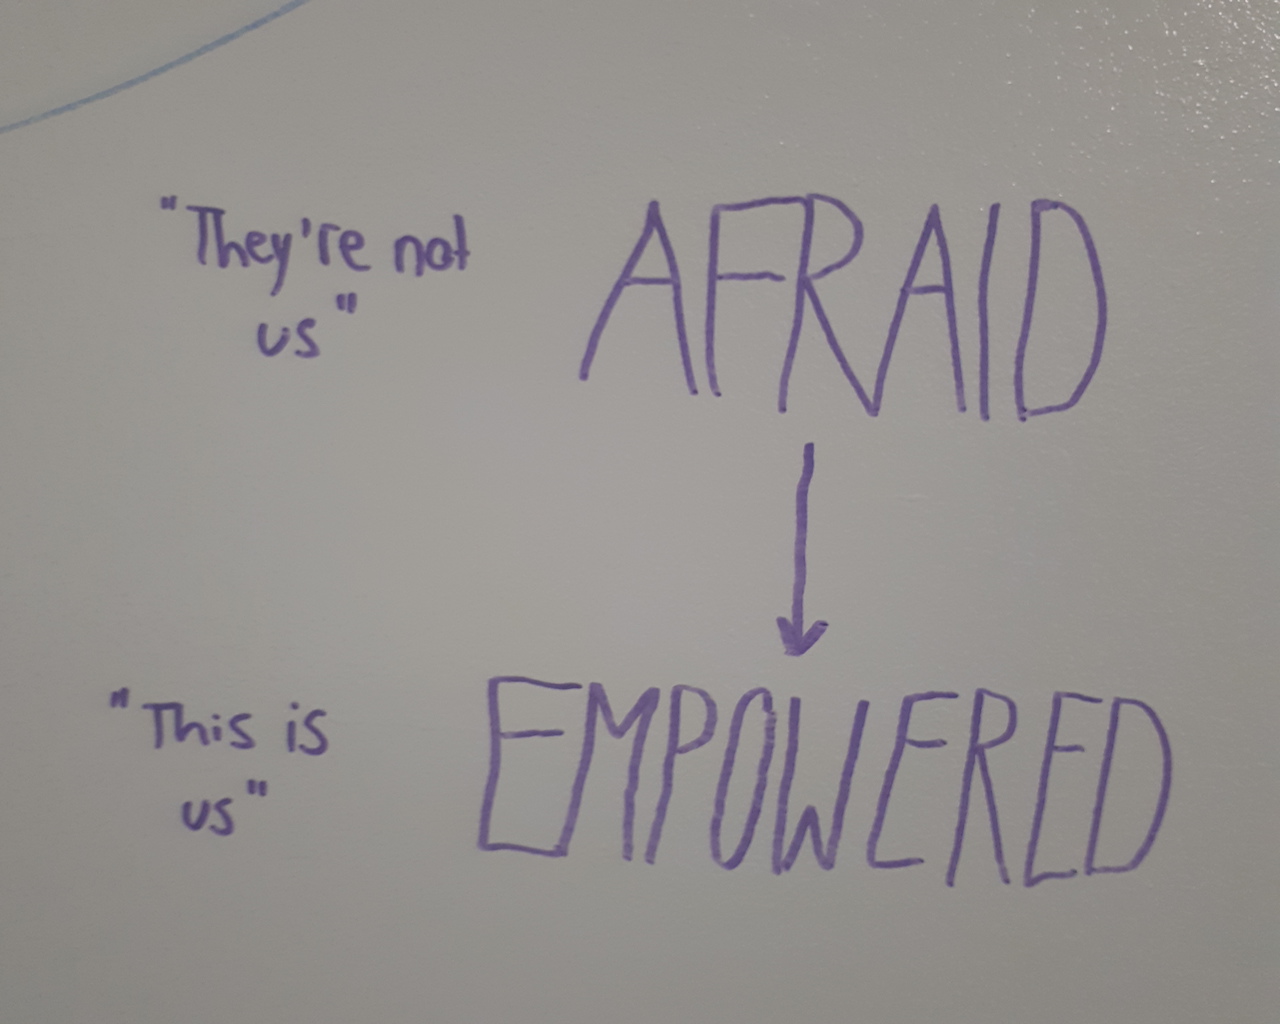 "They're not
us"
AFRAID
"This is
us"
EMPOWERED